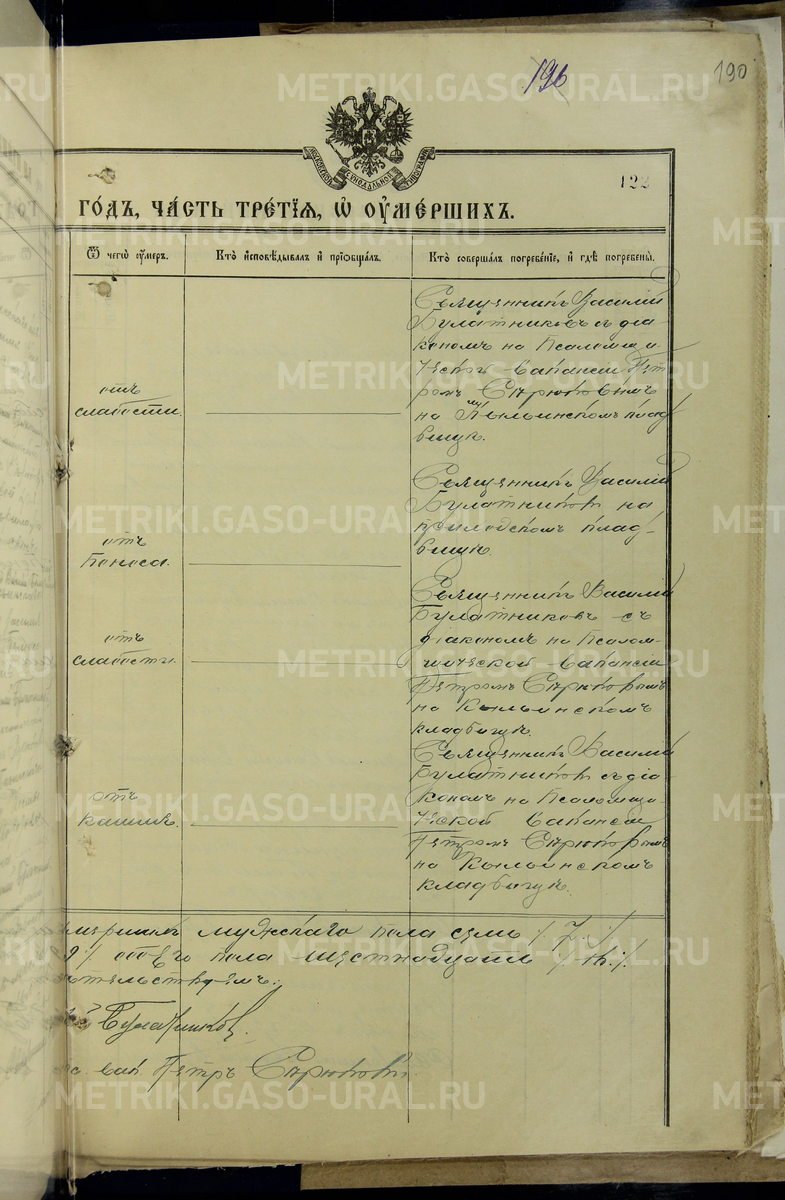 196
190
МОСКОВСКОЙ СѴНОДАЛЬНОЙ ТИПОГРАФІИ
122
ГО́ДЪ, ЧА́СТЬ ТРЕ́ТІѦ, Ѡ ОУМЕ́РШИХЪ.
Ѿ чегѡ̀ оу́меръ.
Кто̀ и҆сповѣ́дывалъ и҆ прїѻбща́лъ.
Кто̀ соверша́лъ погребе́нїе, и҆ гдѣ̀ погребены̀.
отъ
слабости.
Священникъ Василій
Булатниковъ съ діа-
кономъ на Псаломщи-
ческой вакансіи Пет-
ромъ Сѣрюковымъ
на Кыльинскомъ клад-
бищѣ.
отъ
Поноса.
Священникъ Василій
Булатниковъ на
приходскомъ клад-
бищѣ.
отъ
слабости.
Священникъ Василій
Булатниковъ съ
діакономъ на Псалом-
щической вакансіи
Петромъ Сѣрюковымъ
на Кыльинскомъ
кладбищѣ.
отъ
кашля.
Священникъ Василій
Булатниковъ съ діа-
кономъ на Псаломщи-
ческой вакансіи
Петромъ Сѣрюковымъ
на Кыльинскомъ
кладбищѣ.
мершихъ мужскаго пола семь /7./
9/ обоего пола шестнадцать /16./
етельствуемъ:
Булатниковъ.
вак Петръ Сѣрюковъ.
METRIKI.GASO-URAL.RU